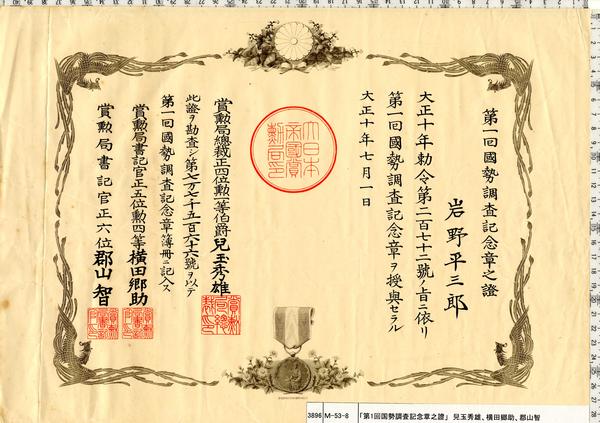 第一回國勢調査記念章之證
岩野平三郎
大正十年勅令第二百七十二號ノ旨ニ依リ
第一回國勢調査記念章ヲ授與セラル
大正十年七月一日
大日本
帝國賞
勲局印
賞勲局總裁正四位勲一等伯爵兒玉秀雄
此證ヲ勘査シ第七万七千五百六十六號ヲ以テ
第一回國勢調査記念章簿冊ニ記入ス
賞勲局書記官正五位勲四等横田郷助
賞勲局書記官正六位郡山智
3896 M-53-8 「第1回国勢調査記念章之證」 兒玉秀雄、横田郷助、郡山智